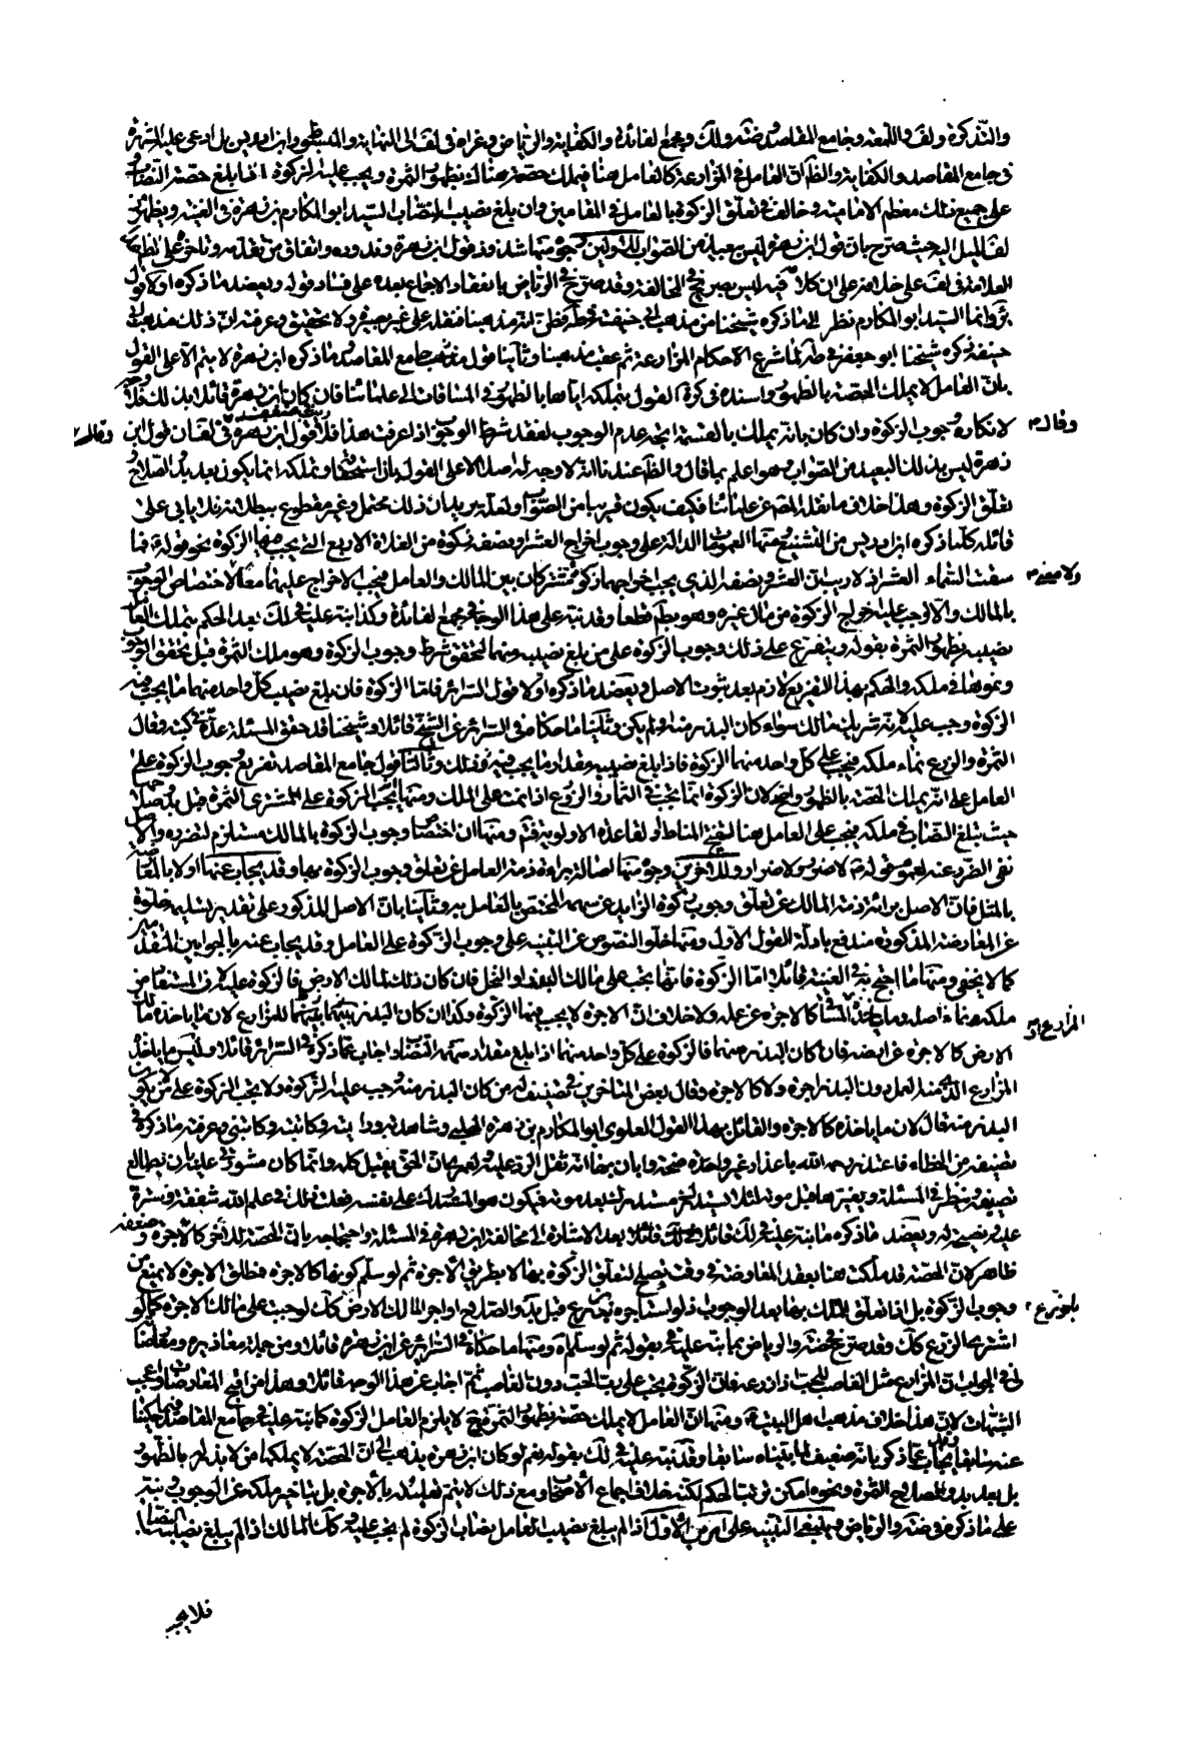 والتذكرة ولف واللمعة وجامع المقاصد وضة ولك ومجمع الفائدة والكفاية والرياض وعزاه في لف الى النهاية والمبسوط وابن ادريس بل ادعى عليه الشهرة
في جامع المقاصد والكفاية والظ ان العامل في المزارعة كالعامل هنا فيملك حصته هناك بظهور الثمرة ويجب عليه الزكوة اذا بلغ حصته النصاب
على جميع ذلك معظم الامامية وخالف في تعلق الزكوة بالعامل في المقامين وان بلغ نصيبه النصاب السيد ابو المكارم بن زهرة في الغنية ويظهر من
لف الميل اليه حيث صرح بان قول ابن زهرة ليس بعيدا من الصواب للاولين وجوه منها شذوذ قول ابن زهرة وندوره واتفاق من تقدمه وتاخر على
العلامة في لف على خلافه على ان كلامه فيه ليس بصريح في المخالفة وقد صرح في الرياض بانعقاد الاجماع بعده على فساد قوله ويعضد ما ذكره اولا قول
وانما السيد ابو المكارم نظر الى ما ذكره شيخنا من مذهب ابي حنيفة فظن انه مذهبنا فنقله على غير بصيرة ولا تحقيق وعرفته ان ذلك مذهب ابي
حنيفة ذكره شيخنا ابو جعفر في لما شرع الاحكام المزارعة ثم عقب مذهبنا وثانيا قول جامع المقاصد ما ذكره ابن زهرة لا يتم الا على القول
بان العامل لا يملك الحصة بالظهور واسنده في كرة القول بتملكه اياها بالظهور في المساقات الى علمائنا فان كان ابن زهرة قائلا بذلك فلا وجه
لانكاره وجوب الزكوة وان كان بانه يملك بالقسمة اتجه عدم الوجوب لفقد شرط الوجوب اذا عرفت هذا فلا قول ابن زهرة في لف ان قول ابن
زهرة ليس بذلك البعيد من الصواب وهو اعلم بما قال والظ عندنا انه لا وجه له اصلا الا على القول بان استحقاقه وتملكه انما يكون بعد بدو الصلاح و
تعلق الزكوة وهذا خلاف ما نقله المص عن علمائنا فكيف يكون قريبا من الصواب ولعله يريد ان ذلك محتمل وغير مقطوع ببطلانه
قائله كما ذكره ابن ادريس من التشنيع ومنها العمومات الدالة على وجوب اخراج العشر او نصفه زكوة من الغلات الاربع التي يجب فيها الزكوة نحو قوله فيما
سقت السماء العشر اذ لا ريب ان العشر ونصفه الذي يجب اخراجهما زكوة مشتركان بين المالك والعامل فيجب الاخراج عليهما معا لا اختصاص الوجوب
بالمالك والا لوجب عليه اخراج الزكوة من مال غيره وهو بط قطعا وقد نبه على هذا الوجه في مجمع الفائدة وكذا نبه عليه في لك بعد الحكم بتملك العامل
نصيبه بظهور الثمرة بقوله ويتفرع على ذلك وجوب الزكوة على من بلغ نصيبه منهما لتحقق شرط وجوب الزكوة وهو ملك الثمرة قبل تحقق الوجوب
ونموها في ملكه والحكم بهذا التفريع لازم بعد ثبوت الاصل ويعضد ما ذكره اولا قول السرائر فاما الزكوة فان بلغ نصيب كل واحد منهما ما يجب فيه
الزكوة وجب عليه لانه شريك مالك سواء كان البذر منه او لم يكن وثانيا ما حكاه في السرائر عن الشيخ قائلا وشيخنا قد حقق المسئلة عدة في كتبه وقال
الثمرة والزرع نماء ملكه فيجب على كل واحد منهما الزكوة فاذا بلغ نصيبه مقدار ما يجب فيه ذلك وثالثا قول جامع المقاصد تفريع وجوب الزكوة على
العامل على انه يملك الحصة بالظهور واضح لان الزكوة انما يجب في الثمار والزروع اذا نمت على الملك ومنها انه يجب الزكوة على المشترى الثمرة قبل بدو صلاحها
حيث تبلغ النصاب في ملكه فيجب على العامل هنا لتنقيح المناط او لقاعدة الاولوية فتم ومنها ان اختصاص وجوب الزكوة بالمالك مستلزم لضرره والاصل
نفى الضرر عنه لعموم قوله لا ضرر ولا ضرار وللاخرين وجوه منها اصالة براءة ذمة العامل عن تعلق وجوب الزكوة بها وقد يجاب عنها اولا بالمعارضة
بالمثل فان الاصل براءة ذمة المالك عن تعلق وجوب زكوة الزايد عن سهمه المختص بالعامل به وثانيا بان الاصل المذكور على تقدير تسليمه خلوه
عن المعارضة المذكورة مندفع بادلة القول الاول ومنها خلو النصوص عن التنبيه على وجوب الزكوة على العامل وقد يجاب عنه بالجوابين المتقدمين
كما لا يخفى ومنها ما احتج به في الغنية قائلا اما الزكوة فانها يجب على مالك البذر او النخل فان كان ذلك لمالك الارض فالزكوة عليه لان المستفاد من
ملكه من نماء اصله وما ياخذه المساقى كالاجرة عن عمله ولا خلاف ان الاجرة لا يجب فيها الزكوة وكذا ان كان البذر للمزارع لان ما ياخذه مالك
الارض كالاجرة عن ارضه فان كان البذر منهما فالزكوة على كل واحد منهما اذا بلغ مقدار سهمه النصاب واجاب عما ذكره في السرائر قائلا وليس ما ياخذه
المزارع الذي منه العمل دون البذر اجرة ولا كالاجرة وقال بعض المتاخرين في تصنيف له من كان البذر منه وجب عليه الزكوة ولا يجب الزكوة على من لا يكون
البذر منه قال لان ما ياخذه كالاجرة والقائل بهذا القول العلوي ابو المكارم بن زهرة الحلبي وشاهدته ورايته وكاتبته وكاتبني وعرفته ما ذكره في
تصنيفه من الخطاء فاعتذر رحمه الله باعذار غير واضحة وابان بها انه ثقل الرد عليه ولعمري ان الحق ثقيل كله وانما كان مشورتي عليه ان يطالع
تصنيفه وينظر في المسئلة ويغيرها قبل موته لئلا يستدرك عليه مستدرك بعد موته فيكون هو المستدرك على نفسه فعلت ذلك علم الله شفقة وسترة
عليه ونصيحة له ويعضد ما ذكره ما نبه عليه في لك قائلا بعد الاشارة الى مخالفة ابن زهرة في المسئلة واحتجاجه بان الحصة كالاجرة وضعفه
ظاهر لان الحصة قد ملكت هنا بعقد المعاوضة في وقت يصلح لتعلق الزكوة بها لا بطريق الاجرة ثم لو سلم كونها كالاجرة فمطلق الاجرة لا يمنع من
وجوب الزكوة بل اذا تعلق الملك بها بعد الوجوب اذ لو استاجره بزرع قبل بدو الصلاح او اجر المالك الارض كك لوجبت على مالك الاجرة كما لو
اشترى الزرع كك وقد صرح في ضة والرياض بما نبه عليه في بقوله ثم لو سلم اه ومنها ما حكاه في السرائر عن ابن زهرة قائلا ومن جملة معاذيره ومعارضاته
لى في الجواب ان المزارع مثل الغاصب للحب اذا زرعه فان الزكوة يجب على رب الحب دون الغاصب ثم اجاب عن هذا الوجه قائلا وهذا من اقبح المعارضات واعجب
الشبهات لان هذا خلاف مذهب اهل البيت ومنها ان العامل لا يملك حصته بظهور الثمرة فح لا يلزم العامل الزكوة كما نبه عليه في جامع المقاصد فيما حكيناه
عنه سابقا ويجاب عما ذكر بانه ضعيف لما بيناه سابقا وقد نبه عليه في لك بقوله نعم لو كان ابن زهرة يذهب الى ان الحصة لا يملكها من لا بذر له بالظهور
بل بعد بدو الصلاح الثمرة ونحوه امكن ترتب الحكم لكنه خلاف اجماع الاصحاب ومع ذلك لا يتم تعليله بالاجرة بل بتاخير ملكه عن الوجوب ونبه
على ما ذكره في ضة والرياض وينبغى التنبيه على امرين الاول اذا لم يبلغ نصيب العامل نصاب الزكوة لم يجب عليه كما ان المالك اذا لم يبلغ نصيبه النصاب
وقال
ولا معنى
المزارع
بل
فلا يجب